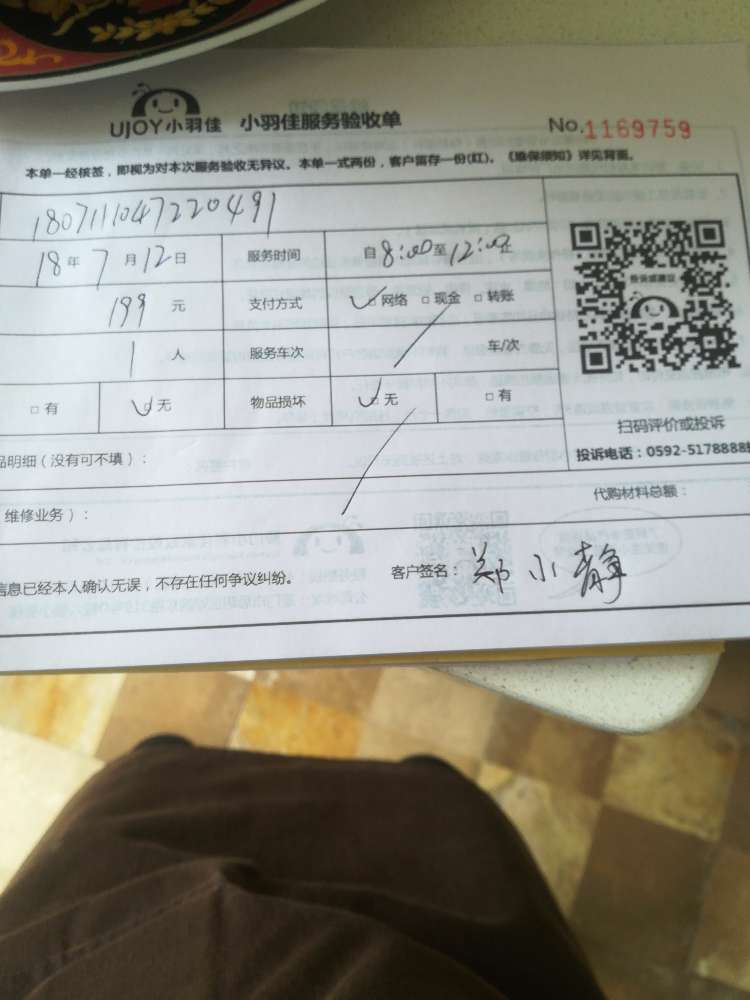 UJOY小羽佳 小羽佳服务验收单 No.1169759
本单一经核签，即视为对本次服务验收无异议。本单一式两份，客户留存一份(红)。《维保须知》详见背面。
180711104722049 1
18年7月12日 服务时间 自8:00至12:00止
199元 支付方式 □网络 □现金 □转账
1人 服务车次 车/次
□有 □无 物品损坏 □无 □有
投诉或建议
扫码评价或投诉
品明细(没有可不填)：
投诉电话：0592-5178888
维修业务)：
代购材料总额：
信息已经本人确认无误，不存在任何争议纠纷。 客户签名：郑小静